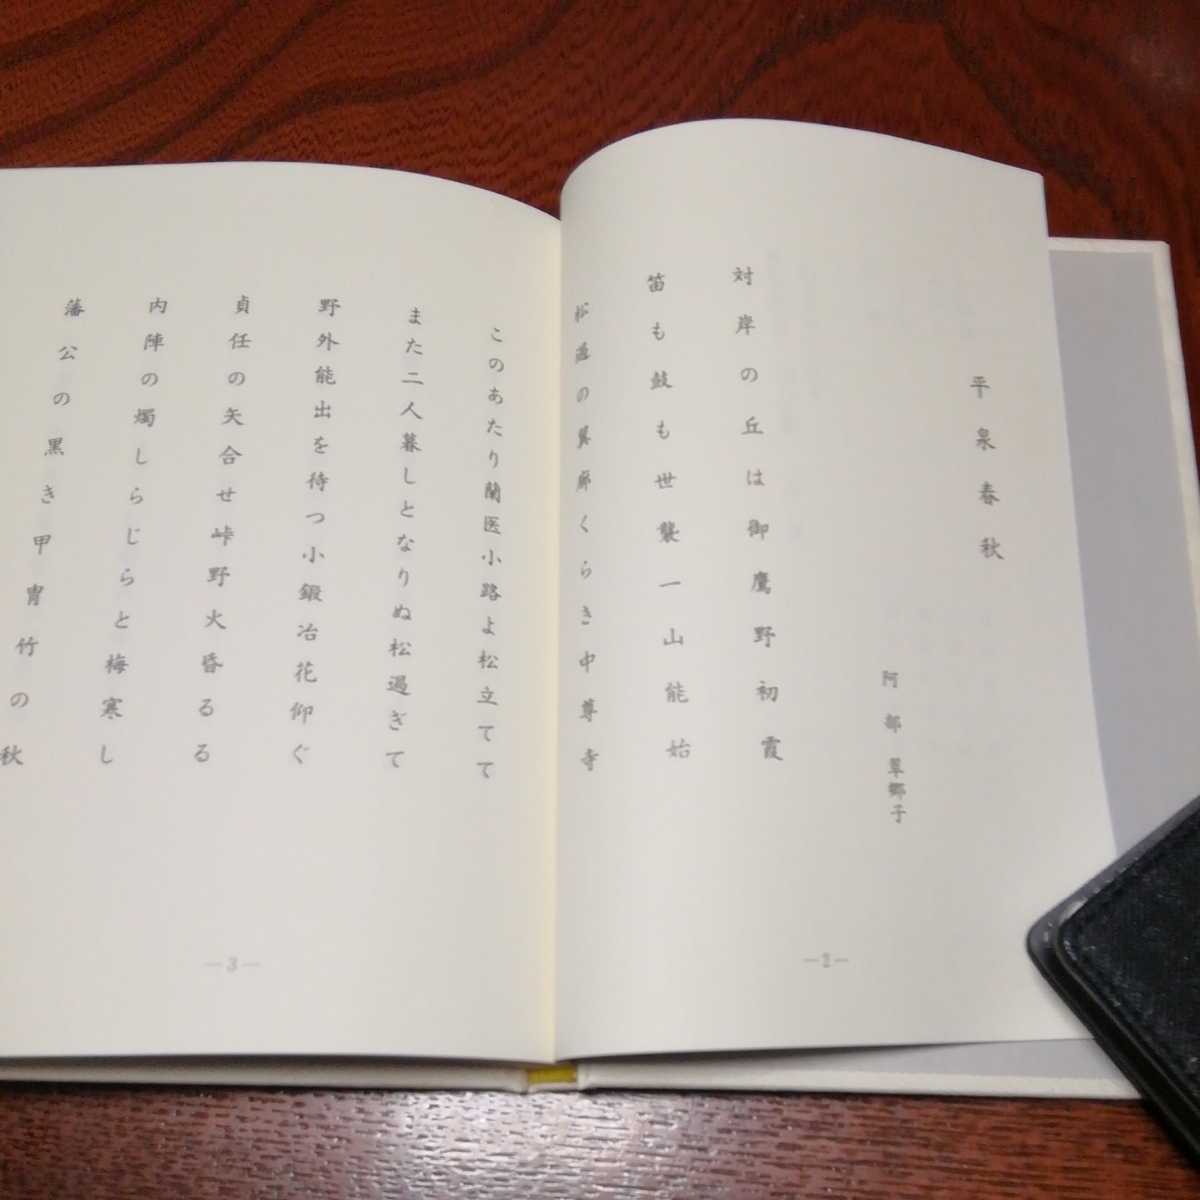 平泉春秋
阿部 翠郷子
対岸の丘は御鷹野初霞
笛も鼓も世襲一山能始
松過の翼廊くらき中尊寺
―2―
このあたり蘭医小路よ松立てて
また二人暮しとなりぬ松過ぎて
野外能出を待つ小鍛冶花仰ぐ
貞任の矢合せ峠野火昏るる
内陣の燭しらじらと梅寒し
藩公の黒き甲冑竹の秋
―3―